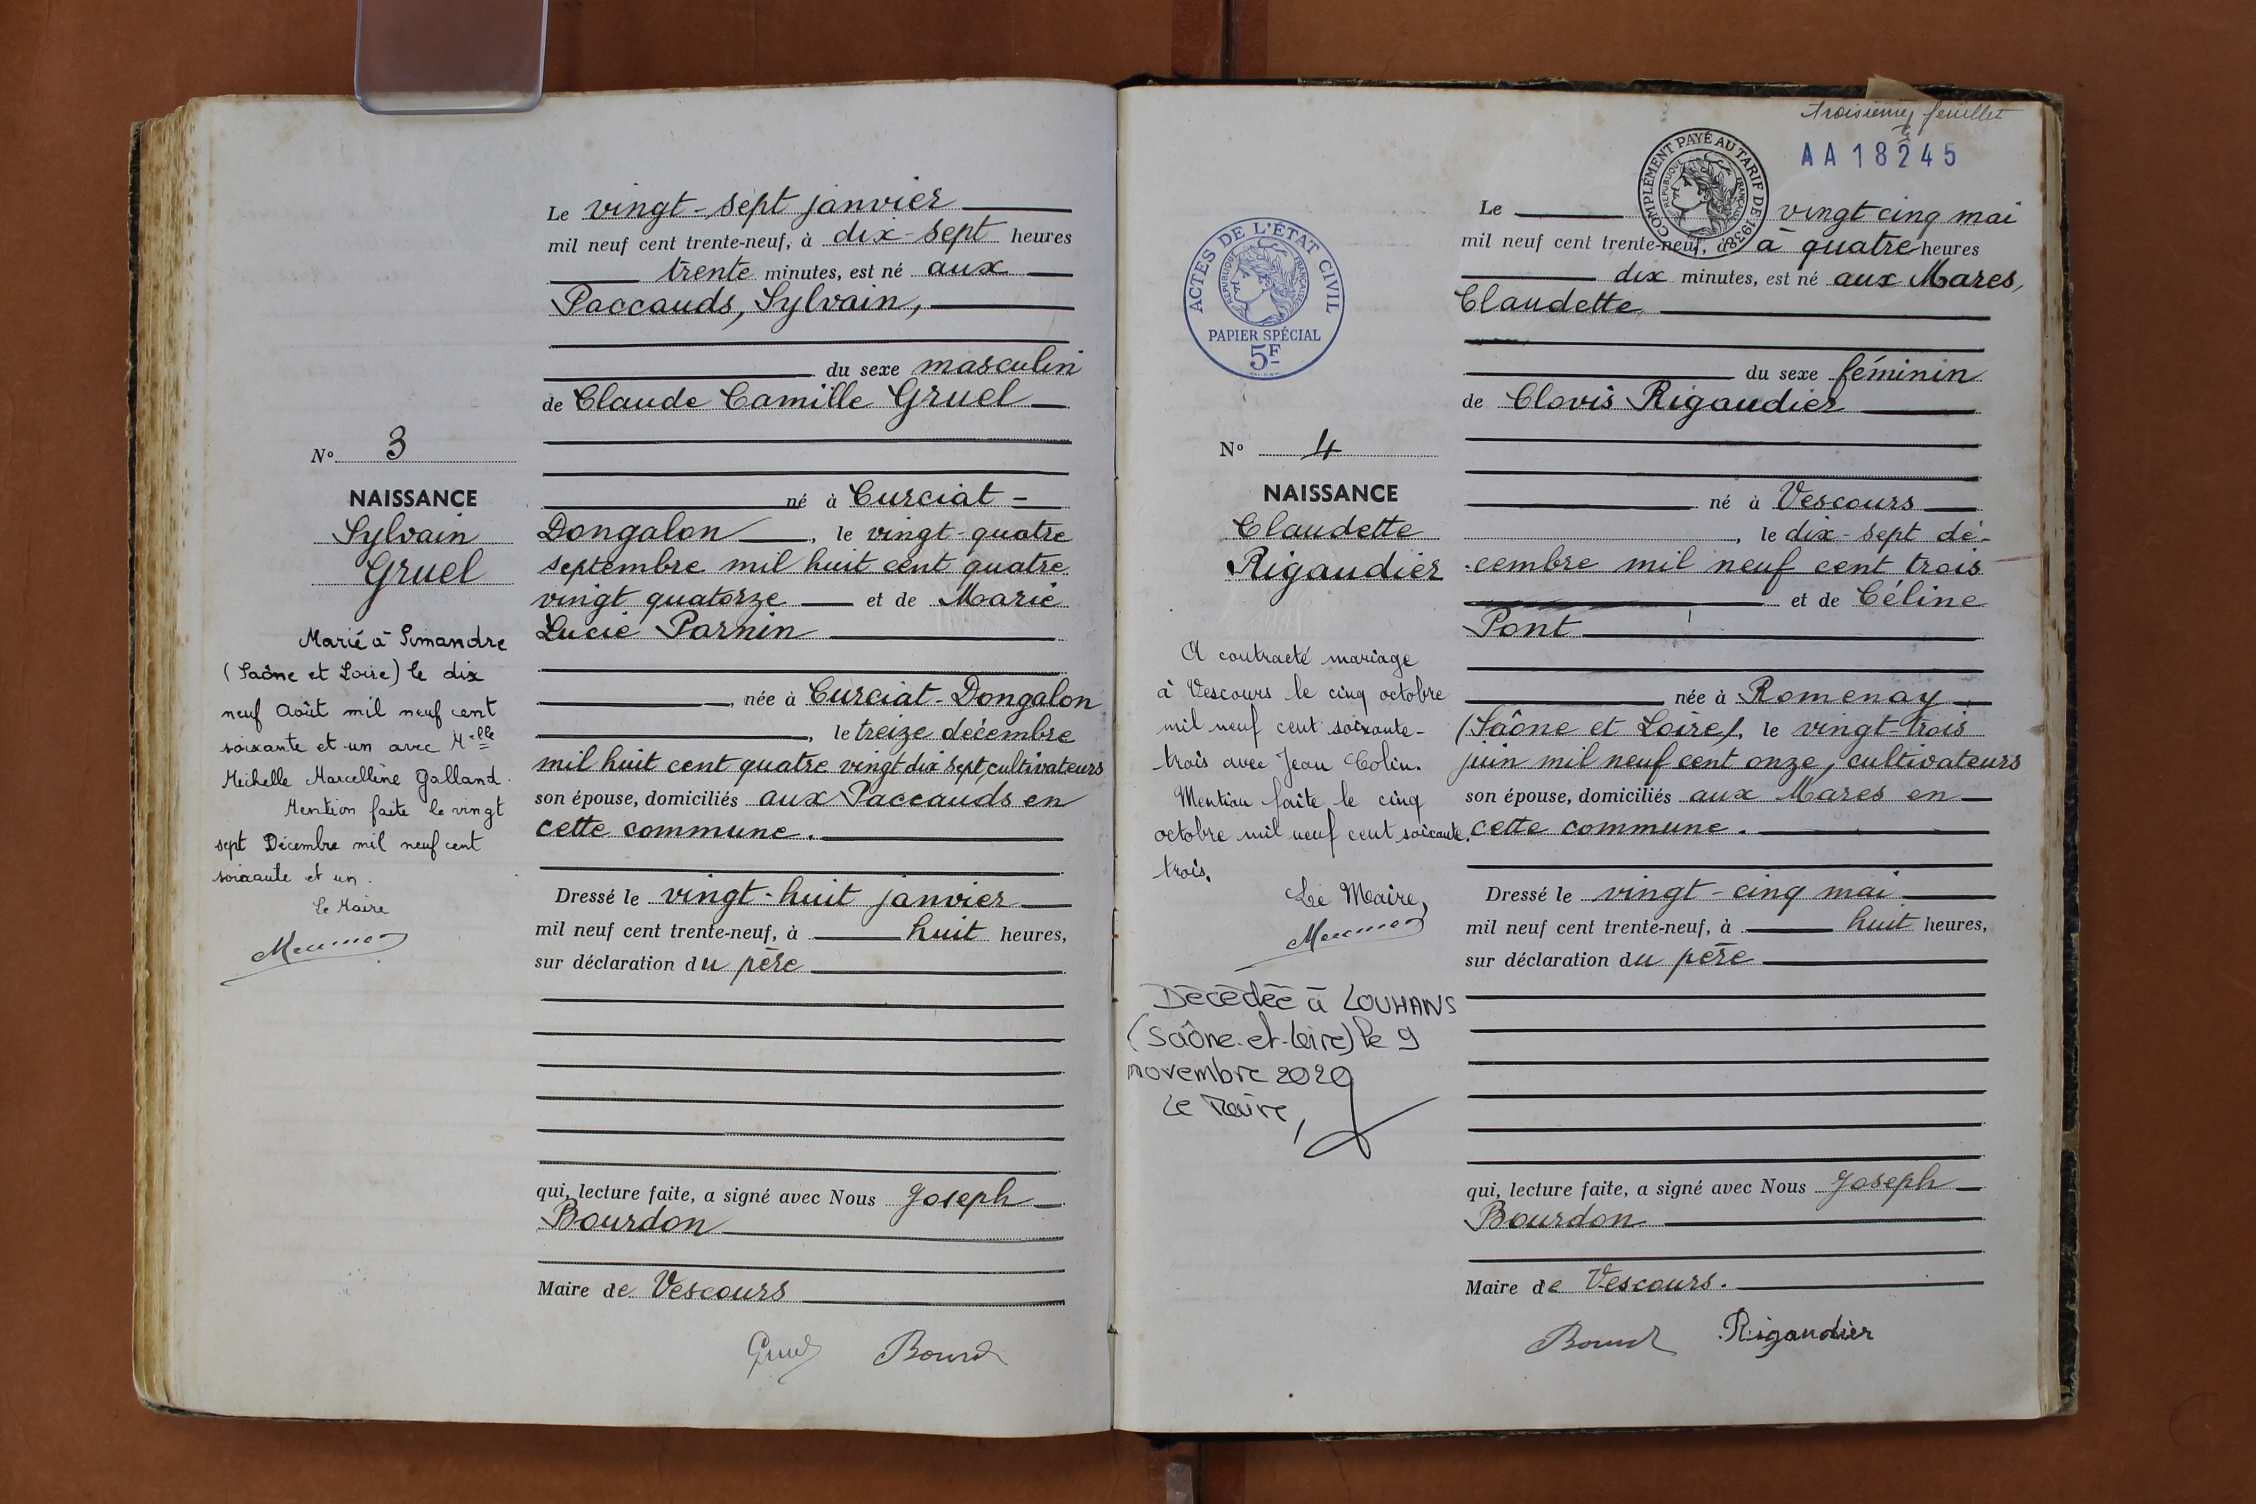 Le vingt-sept janvier
mil neuf cent trente-neuf, à dix-sept heures
trente minutes, est né aux
Paccauds, Sylvain,
du sexe masculin
de Claude Camille Gruel
N° 3
NAISSANCE
Sylvain
Gruel
né à Curciat-
Dongalon, le vingt-quatre
septembre mil huit cent quatre
vingt quatorze et de Marie
Lucie Parnin
née à Curciat-Dongalon
le treize décembre
mil huit cent quatre vingt dix sept, cultivateurs
son épouse, domiciliés aux Paccauds en
cette commune.
Marié à Simandre
(Saône et Loire) le dix
neuf Août mil neuf cent
soixante et un avec Melle
Michelle Marcelline Galland.
Mention faite le vingt
sept Décembre mil neuf cent
soixante et un.
Le Maire
Dressé le vingt-huit janvier
mil neuf cent trente-neuf, à huit heures,
sur déclaration du père
qui, lecture faite, a signé avec Nous Joseph
Bourdon
Maire de Vescours
Gruel Bourdon
troisième feuillet
AA18245
COMPLÉMENT PAYÉ AU TARIF DE 1938
RÉPUBLIQUE FRANÇAISE
ACTES DE L'ÉTAT CIVIL
RÉPUBLIQUE FRANÇAISE
PAPIER SPÉCIAL
5F
Le vingt cinq mai
mil neuf cent trente-neuf, à à quatre heures
dix minutes, est né aux Mares,
Claudette
du sexe féminin
de Clovis Rigaudier
N° 4
NAISSANCE
Claudette
Rigaudier
né à Vescours
, le dix-sept dé-
cembre mil neuf cent trois
et de Céline
Pont
née à Romenay
(Saône et Loire), le vingt-trois
juin mil neuf cent onze, cultivateurs
son épouse, domiciliés aux Mares en
cette commune.
A contracté mariage
à Vescours le cinq octobre
mil neuf cent soixante-
trois avec Jean Colin.
Mention faite le cinq
octobre mil neuf cent soixante.
trois.
Le Maire,
Décédée à LOUHANS
(Saône-et-Loire) le 9
novembre 2020
Le Maire,
Dressé le vingt-cinq mai
mil neuf cent trente-neuf, à huit heures,
sur déclaration du père
qui, lecture faite, a signé avec Nous Joseph
Bourdon
Maire de Vescours.
Bourdon Rigaudier